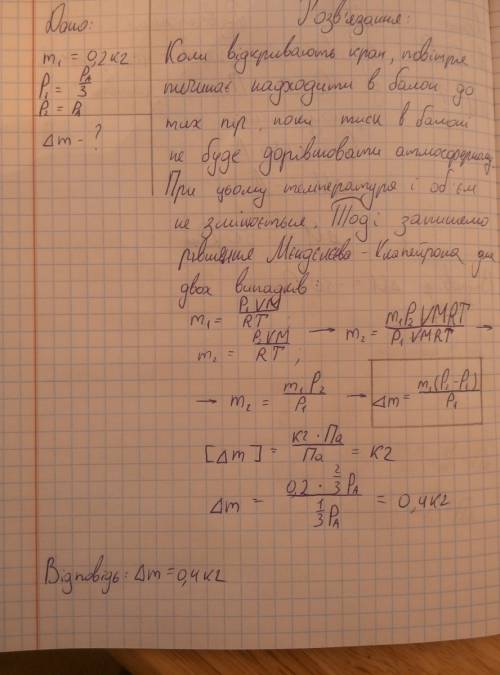 Дано:
m₁ = 0,2 кг
P₁ = Pₐ/3
P₂ = Pₐ
Δm - ?
Розв'язання:
Коли відкривають кран, повітря
починає надходити в балон до
тих пір, поки тиск в балоні
не буде дорівнювати атмосферному.
При цьому температура і об'єм
не змінюється. Тоді запишемо
рівняння Менделєєва - Клапейрона для
двох випадків:
m₁ = P₁VM/RT
m₂ = P₂VM/RT; → m₂ = m₁P₂VMRT/P₁VMRT →
→ m₂ = m₁P₂/P₁ → Δm = m₁(P₂-P₁)/P₁
[Δm] = кг · Па/Па = кг
Δm = 0,2 · 2/3 Pₐ / 1/3 Pₐ = 0,4 кг
Відповідь: Δm = 0,4 кг